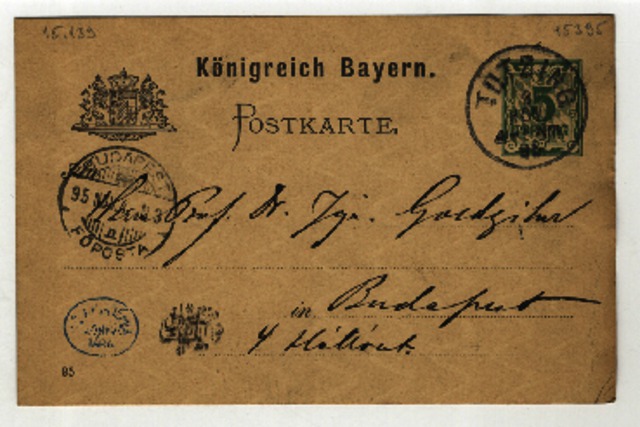 15.139
15395
Königreich Bayern.
POSTKARTE.
TUTZING
5
BUDAPEST
95
FŐPOSTA
Herrn Prof. Dr. Ign. Goldziher
in Budapest
4 Hollóut.
95